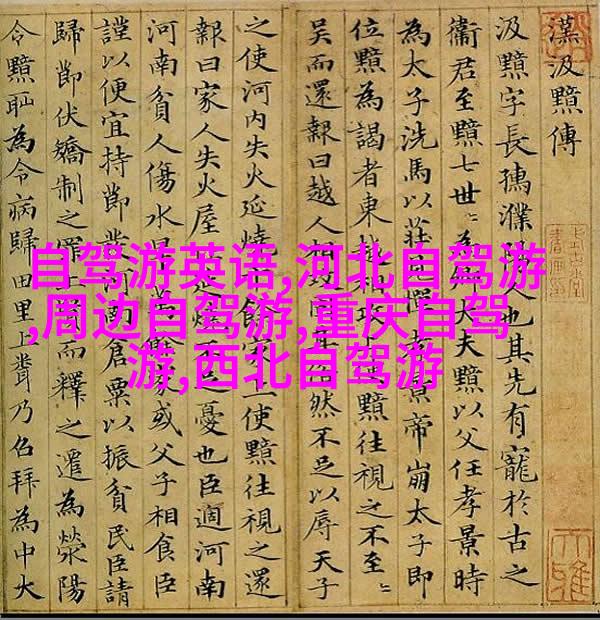 漢汲黯傳
汲黯字長孺濮也其先有寵於古之
衞君至黯七世〻為大夫黯以父任孝景時
為太子洗馬以莊憚孝景帝崩太子即
位黯為謁者東越相攻黯往視之不至〻
吳而還報曰越人相攻然不足以辱天子
之使河内失火延燒餘家上使黯往視之還
報曰家人失火屋延燒不足憂也臣適河南
河南貧人傷水家或父子相食臣
謹以便宜持節發河南倉粟以振貧民臣請
歸節伏矯制之罪而釋之遷為滎陽
令黯恥為令病歸田里上乃召拜為中大
自驾游英语,河北自驾游
,周边自驾游,重庆自驾
游,西北自驾游